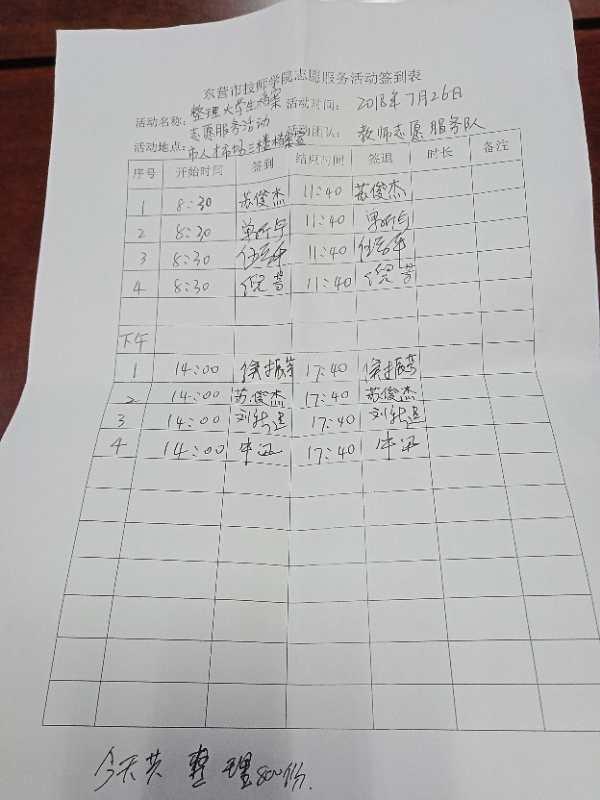 东营市技师学院志愿服务活动签到表
活动名称：整理大学生档案志愿服务活动 活动时间：2018年7月26日
活动地点：市人才市场三楼档案室 活动团队：教师志愿服务队
序号 开始时间 签到 结束时间 签退 时长 备注
1 8:30 苏俊杰 11:40 苏俊杰
2 8:30 11:40
3 8:30 11:40
4 8:30 倪芳 11:40 倪芳
下午
1 14:00 侯振芳 17:40 侯振芳
2 14:00 苏俊杰 17:40 苏俊杰
3 14:00 17:40
4 14:00 17:40
今天共整理800份.